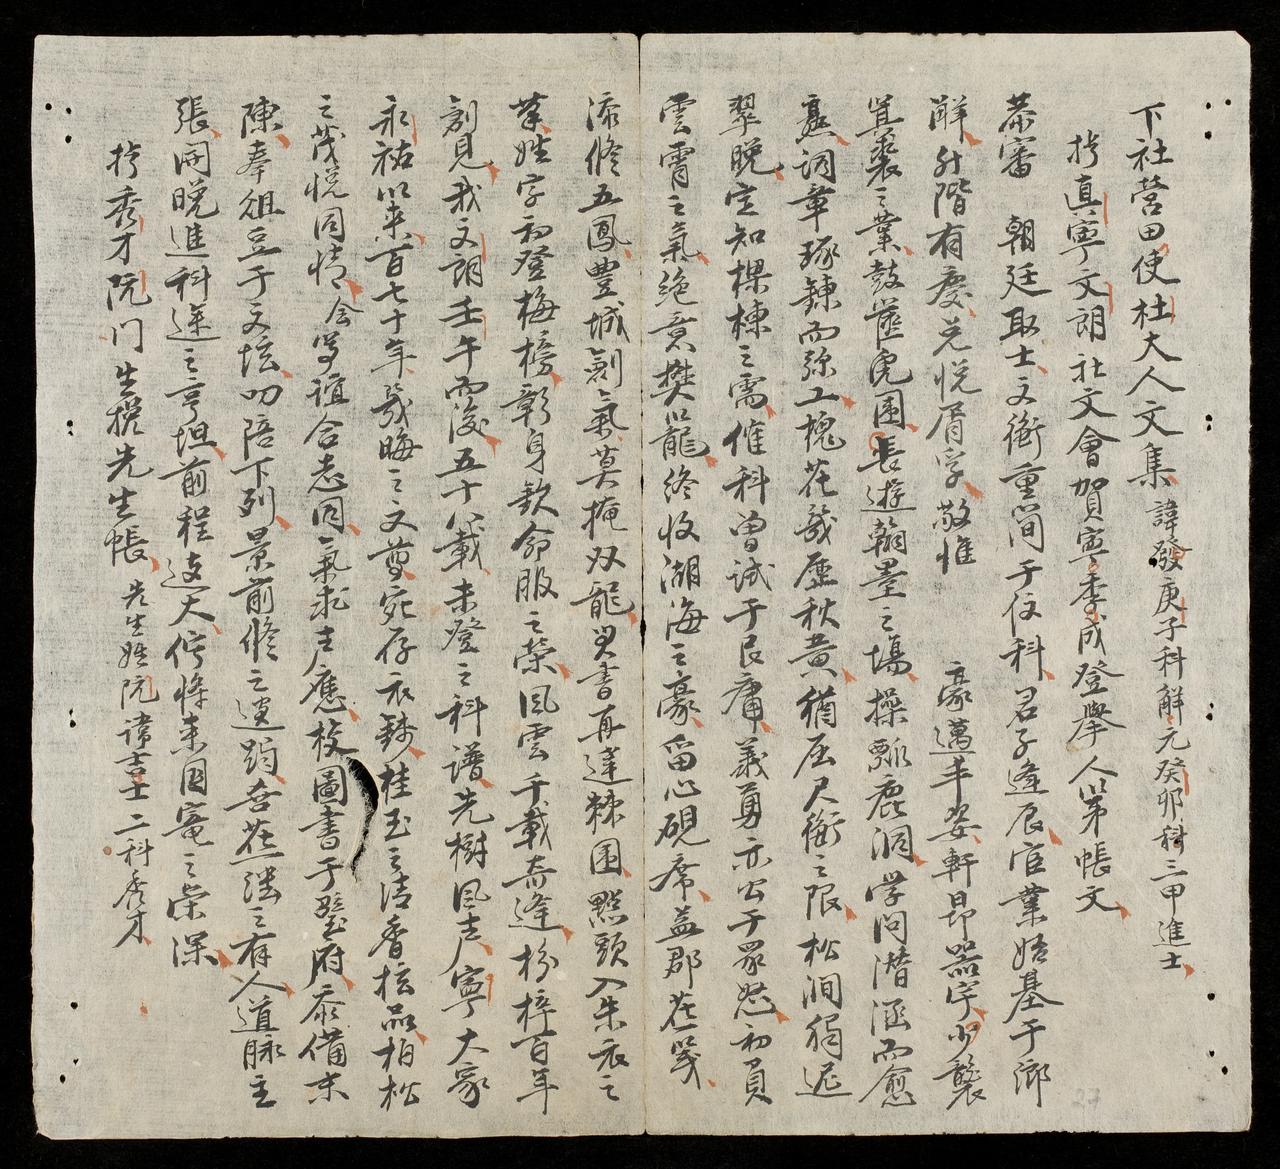 下社營田使杜大人文集 諱發庚子科解元癸卯科三甲進士
擬直寧文朗社文會賀寧季成登舉人第帳文
恭審 朝廷取士文衡重簡于伩科君子逢辰宦業始基于鄉
解升階有慶允悅眉字敬惟 豪邁丰姿軒昂器宇少襲
箕裘之業鼓篋虎圍長遊翰墨之場操瓢鹿洞学问潛涵而愈
詞章琢鍊而弥工槐花幾歷秋黃猶屈尺衡之限松澗獨遲
翠晚定知樑棟之需催科曾試于良庸義勇亦公于眾怒初員
雲霄之氣絶意樊籠终收湖海之豪留心硯席盖郡花箋
添修五鳳豐城劍氣莫掩双龍賢書再逢棘围點頭入朱衣之
筆姓字初登梅榜彰身欽命服之榮風雲千載奇逢枌梓百年
創見我文朗壬午而後五十八載未登之科譜先樹風声寧大家
永祐以来百七十年幾晦之文尊宛存衣鉢桂玉之清香核品柏松
之茂悅同情会写誼合志同氣求主應枚圖書于壁府忝備末
陳奉俎豆于文坛叨陪下列景前修之逸躅吾燕謀之有人道脉主
張開晚進科運之亨坦前程遠大佇将来國家之榮深
擬秀才阮门生挽先生帳 先生姓阮諱言士二科秀才